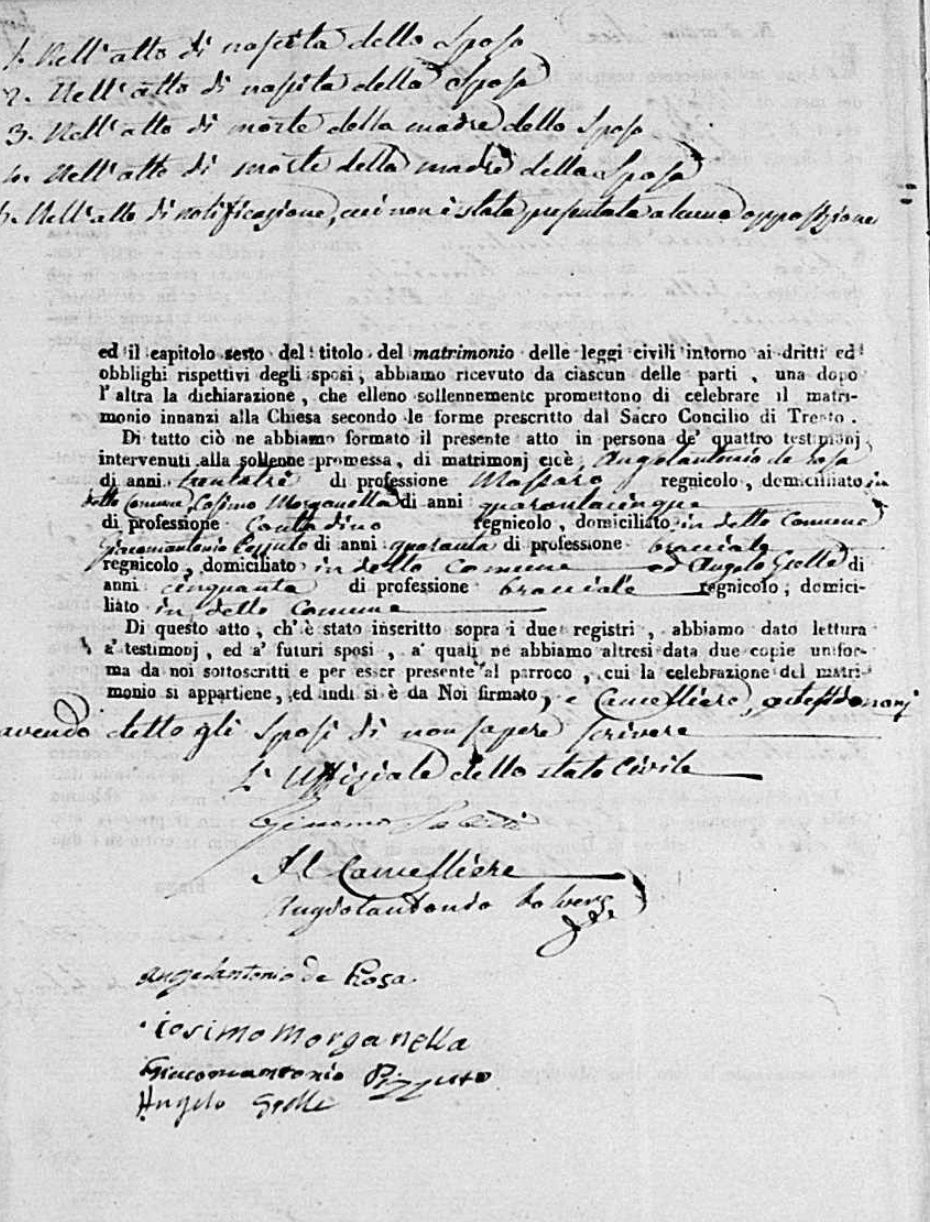 1. Nell'atto di nascita dello Sposo
2. Nell'atto di nascita della Sposa
3. Nell'atto di morte della madre dello Sposo
4. Nell'atto di morte della madre della Sposa
5. Nell'atto di notificazione, cui non è stata presentata alcuna opposizione
ed il capitolo sesto del titolo del matrimonio delle leggi civili intorno ai dritti ed
obblighi rispettivi degli sposi, abbiamo ricevuto da ciascun delle parti , una dopo
l'altra la dichiarazione , che elleno sollennemente promettono di celebrare il matri-
monio innanzi alla Chiesa secondo le forme prescritto dal Sacro Concilio di Trento .
Di tutto ciò ne abbiamo formato il presente atto in persona de' quattro testimonj
intervenuti alla sollenne promessa, di matrimonj cicè, Angelantonio de Rosa
di anni trentatrè di professione Massaro regnicolo, domiciliato in
detto Comune, Cosimo Morganella di anni quarantacinque
di professione Contadino regnicolo, domiciliato in detto Comune
Giacomantonio Pizzuto di anni quaranta di professione bracciale
regnicolo, domiciliato in detto Comune ed Angelo Grelle di
anni cinquanta di professione bracciale regnicolo, domici-
liato in detto Comune
Di questo atto, ch'è stato inscritto sopra i due registri , abbiamo dato lettura
a' testimonj, ed a' futuri sposi , a' quali ne abbiamo altresi data due copie unifor-
ma da noi sottoscritti e per esser presente al parroco , cui la celebrazione del matri-
monio si appartiene, ed indi si è da Noi firmato, e Cancelliere, e testimonj
avendo detto gli Sposi di non sapere scrivere
L'Uffiziale dello stato Civile
Il Cancelliere
Angelantonio de Rosa
Cosimo Morganella
Giacomantonio Pizzuto
Angelo Grelle